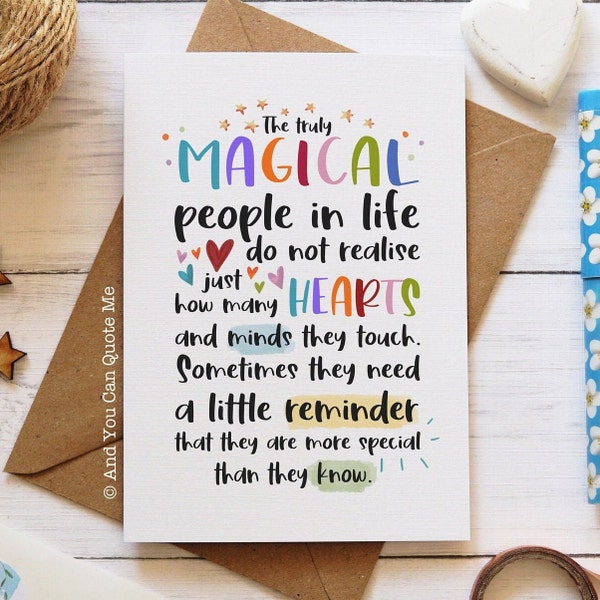 The truly
MAGICAL
people in life
do not realise
just
how many HEARTS
and minds they touch.
Sometimes they need
a little reminder
that they are more special
than they know.
© And You Can Quote Me